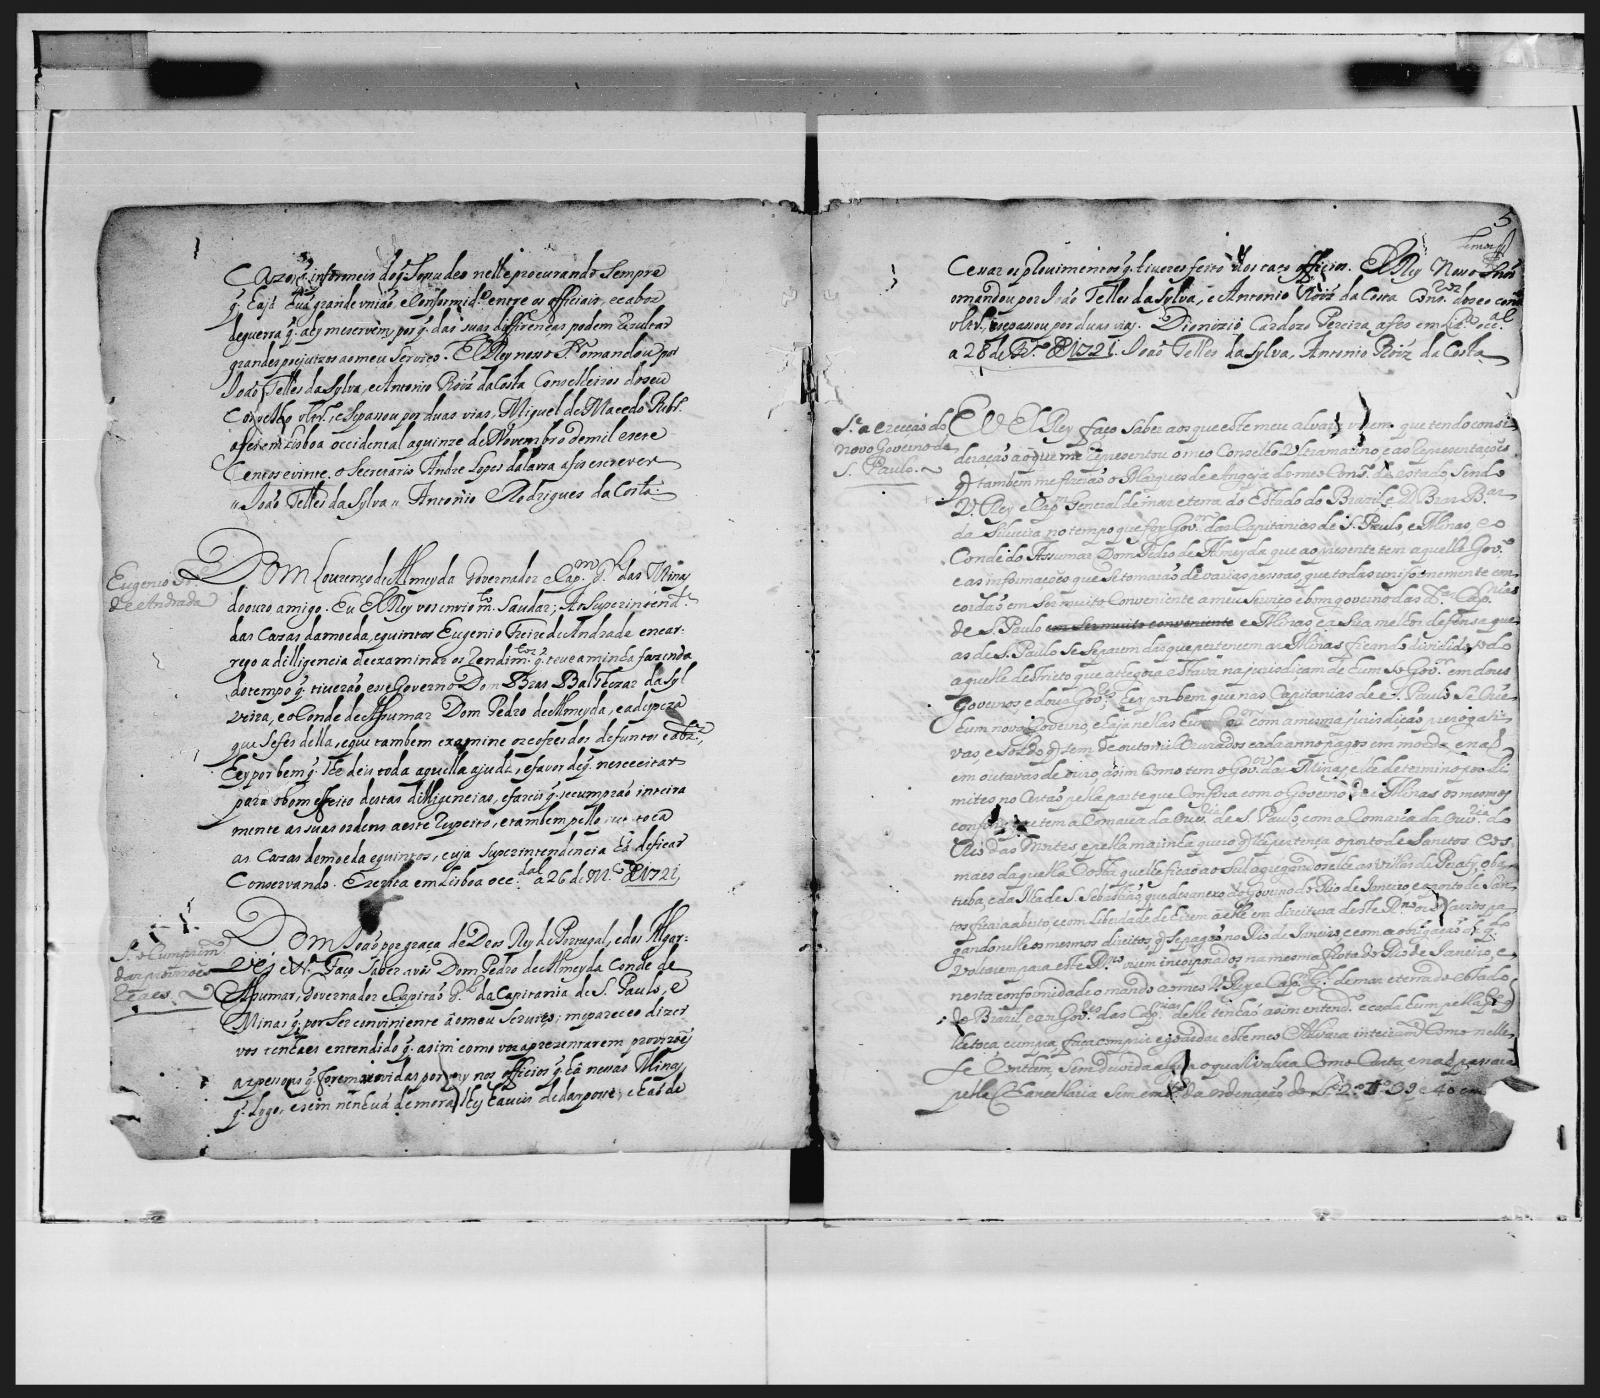 Cazo q̃ informeis do q̃ Sepudeo nelle procurando Sempre
q̃ haja hũa grande vnião e Conformid.e entre os officiais, e cabos
de guerra q̃ ahy me servem, por q̃ das suas differenças podem rezultar
grandes prejuizos ao meu Serviço. El Rey nosso S.r o mandou por
João Telles da Sylva, e Antonio Roiz da Costa Conselheiros do seu
Cons.o vltr.o, e Sepassou por duas vias, Miguel de Macedo Rib.o
a fes em Lisboa occidental a quinze de Novembro de mil e sete
Centos e vinte. o Secretario Andre Lopes da Lavra a fis escrever
" João Telles da Sylva " Antonio Rodrigues da Costa
Eugenio Fr.e
de Andrada
Dom Lourenço de Almeyda Governador e Cap.m G.l das Minas
do ouro amigo. Eu El Rey vos envio m.to Saudar; Ao Superintend.e
das Cazas da moeda, e quintos Eugenio Freire de Andrade encar-
rego a dilligencia de examinar os rendim.tos q̃ teve a minha fazenda
do tempo q̃ tiverão esse Governo Dom Bras Balthezar da Syl
veira, e o Conde de Assumar Dom Pedro de Almeyda, e a despeza
que Sefes della, e que tambem examine os cofres dos defuntos e abz.tes,
Hey por bem q̃ lhe deis toda aquella ajuda, e favor de q̃ nesceeitar
para o bom effeito destas dilligencias, e fareis q̃ se cumprão inteira
mente as suas ordens a este respeito, e tambem pello que toca
as Cazas de moeda e quintos, cuja Superintendencia ha de ficar
Conservando. Escrita em Lisboa occ.dal a 26 de M.ço de 1721,
S.e o Cumprim.to
dar provizoes
Reaes.
Dom João por graça de Deos Rey de Portugal, e dos Algar-
ves etc.a Faço Saber a vós Dom Pedro de Almeyda Conde de
Assumar, Governador e Capitão G.l da Capitania de S. Paulo, e
Minas q̃ por Ser conviniente a o meu Serviço; me pareceo dizer
vos tenhaes entendido q̃ asim como vos aprezentarem provizões
as pessoas q̃ forem providas por my nos officios q̃ ha nessas Minas
q̃ logo, e sem nenhuã demora lhes haveis de dar posse, e hão de
5
Cessar os provimentos q̃ tiveres feito dos taes officios. El Rey Nosso Snor
o mandou por João Telles da Sylva, e Antonio Roiz da Costa Cons.ros do seo cons.o
vltr.o, e se passou por duas vias. Dionizio Cardozo Pereira a fes em Lix.a occ.al
a 26 de de 1721. João Telles da Sylva, Antonio Roiz da Costa
S.e a erecção do
novo Governo de
S. Paulo.
EU El Rey faço Saber aos que este meu alvara virem que tendo consi-
deração ao que me reprezentou o meo Conselho Ultramarino, e as Reprezentações
q̃ tambem me fizerão o Marques de Angeja do meo Cons.o de estado Sendo
V. Rey e Cap.m General de mar e terra do Estado do Brazil, e D. Braz B.ar
da Silveira no tempo que foy Gov.or das Capitanias de S. Paulo, e Minas, e o
Conde do Assumar Dom Pedro de Almeyda que ao prezente tem aquelle Gov.o
e as informações que Se tomarão de varias pessoas, que todas uniformemente con-
cordão em Ser muito Conveniente a meu Serviço e bom governo das d.as Cap.nias
de S. Paulo em Ser muito conveniente e Minas, e a Sua melhor defensa que
as de S. Paulo Se Separem das que pertencem as Minas ficando dividido todo
aquelle destricto que athe gora estava na jurisdiçam de hum so Gov.or em dous
Governos e dous Gov.res Hey por bem que nas Capitanias de S. Paulo se crie
hum novo Governo, e haja nellas hum Gov.or com a mesma jurisdição, prerogati-
vas, e Soldo q̃ tem de outo mil cruzados cada anno pagos em moeda e não
em outavas de ouro, asim como tem o Gov.or das Minas, e lhe determino por li-
mites no Certão pella parte que Confina com o Governo das Minas os mesmos
confins que tem a Comarca da Ouv.ria de S. Paulo, com a Comarca da Ouv.ria do
Rio das Mortes e pella marinha quero q̃ lhe pertença o porto de Santos e os
mais daquella Costa que lhe ficão ao Sul agregandoselhe as villas de Paraty, Uba-
tuba, e da Ilha de S. Sebastião, que desanexo do Governo do Rio de Janeiro e o porto de San-
tos ficara aberto, e com Liberdade de hirem a elle em direitura deste R.no os Navios pa-
gando nelle os mesmos direitos q̃ se pagão no Rio de Janeiro, e com a obrigação de q.do
Voltarem para este R.no virem incorporados na mesma frota do Rio de Janeiro, e
nesta conformidade o mando ao meo V. Rey e Cap.m G.l de mar e terra do Estado
do Brazil e aos Gov.res das Cap.nias delle tenhão asim entend.o e cada hum pella parte q̃
lhe toca cumpra, faça comprir e guardar este meo Alvara inteiram.te Como nelle
se Contem, Sem duvida alguã o qual valera Como Carta e não passara
pella Chancellaria Sem emb.o da ordenação do L.o 2.o tt.o 39 e 40 em